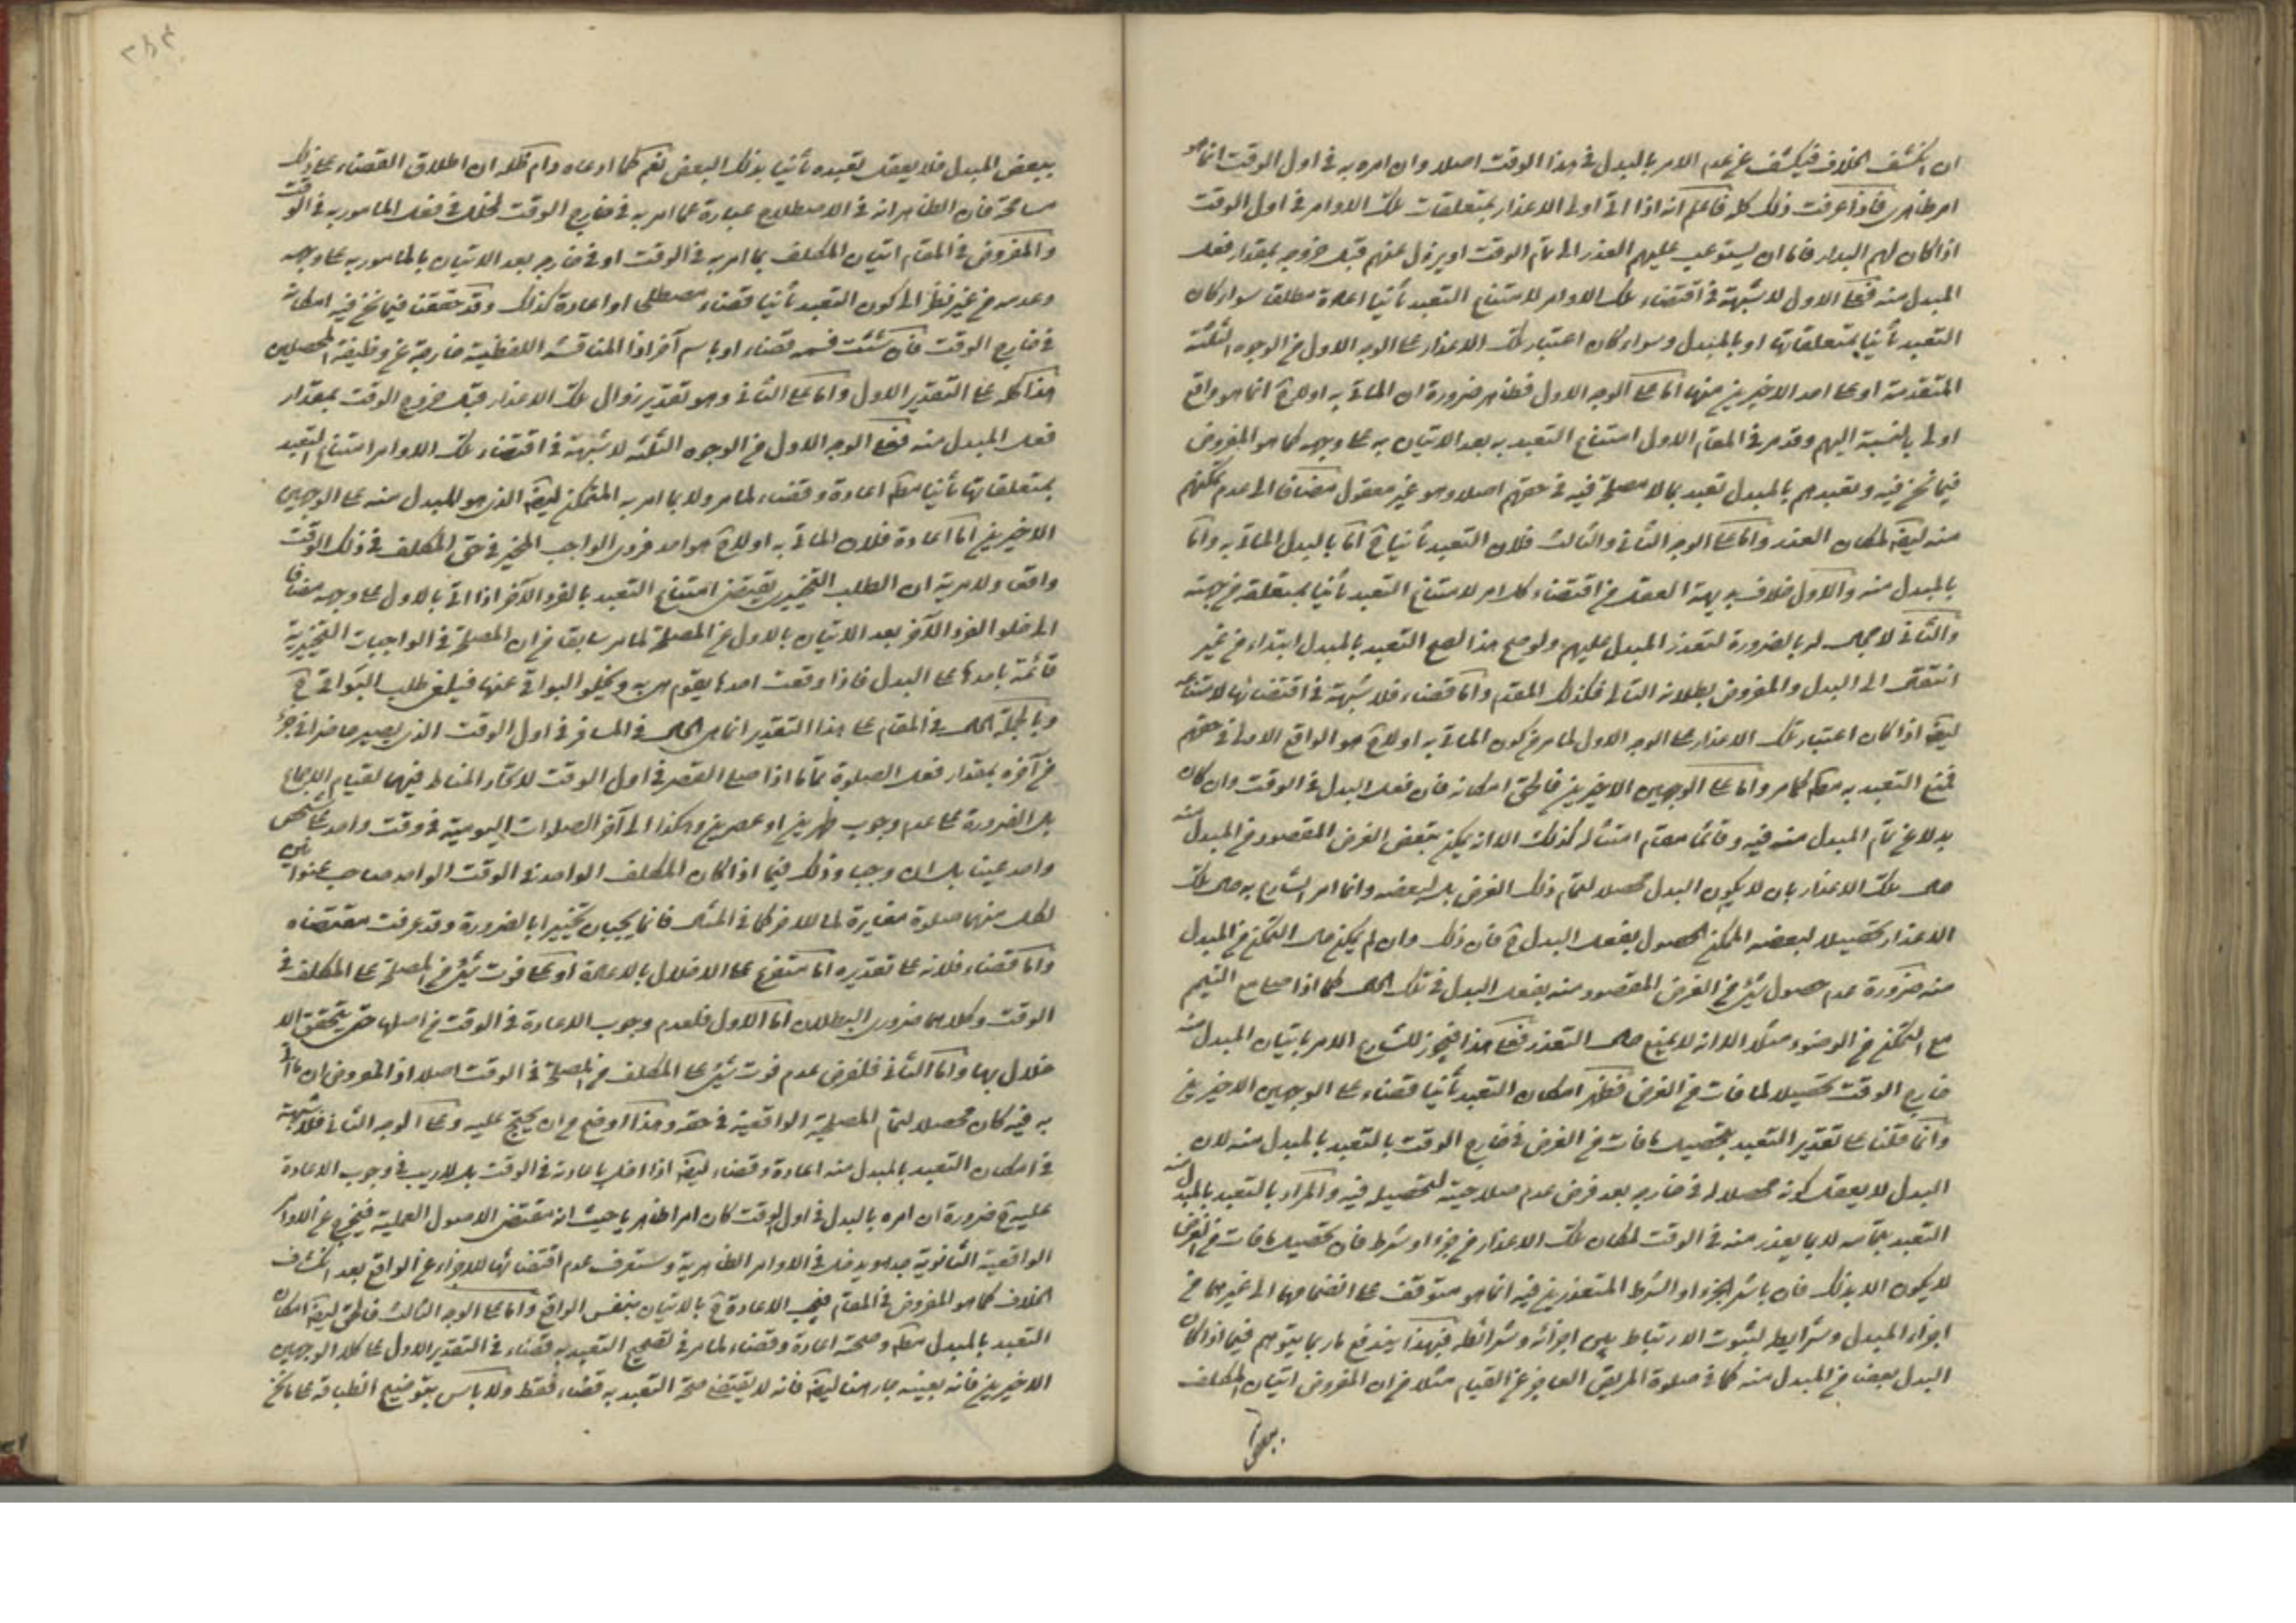 ان انكشف الخلاف فيكشف عن عدم الامر بالبدل في هذا الوقت اصلا وان امره به في اول الوقت انما هو
امر ظاهري فاذا عرفت ذلك كله فاعلم انه اذا اتى اولى الاعذار بمتعلقات تلك الاوامر في اول الوقت
اذا كان لهم البدار فاما ان يستوعب عليهم العذر الى تمام الوقت او يزول عنهم قبل خروجه بمقدار فعل
المبدل منه فعلى الاول لا شبهة في اقتضاء تلك الاوامر لامتناع التعبد ثانيا اعادة مطلقا سواء كان
التعبد ثانيا بمتعلقاتها او بالمبدل وسواء كان اعتبار تلك الاعذار على الوجه الاول من الوجوه الثلثة
المتقدمة او على احد الاخيرين منها اما على الوجه الاول فظاهر ضرورة ان الماتى به اولا ح انما هو واقع
اولى بالنسبة اليهم وقد مر في المقام الاول امتناع التعبد به بعد الاتيان به على وجهه كما هو المفروض
فيما نحن فيه وتعبدهم بالمبدل تعبد بما لا مصلحة فيه في حقهم اصلا وهو غير معقول مضافا الى عدم تمكنهم
منه ايضا لمكان العذر واما على الوجه الثاني والثالث فلان التعبد ثانيا ح اما بالبدل الماتى به واما
بالمبدل منه والاول خلاف بديهة العقل من اقتضاء كل امر لامتناع التعبد ثانيا بمتعلقه من جهته
والثاني لا مجال له بالضرورة لتعذر المبدل عليهم ولو صح هذا لصح التعبد بالمبدل ابتداء من غير
انتقال الى البدل والمفروض بطلانه التالي فكذلك المقدم واما قضاء فلا شبهة في اقتضائها لامتناعه
ايضا اذا كان اعتبار تلك الاعذار على الوجه الاول لما مر من كون الماتى به اولا ح هو الواقع الاولى في حقهم
فمنع التعبد به مطلقا كما مر واما على الوجهين الاخيرين فالحق امكانه فان فعل البدل في الوقت وان كان
بدلا عن تمام المبدل منه فيه وقائما مقام امتثاله كذلك الا انه يمكن بنقض الغرض المقصود من المبدل منه
حال تلك الاعذار بان لا يكون البدل محصلا لتمام ذلك الغرض بل لبعضه وانما امر الشارع به حال تلك
الاعذار تحصيلا لبعضه الممكن الحصول بفعل البدل ح فان ذلك وان لم يكن حال التمكن من المبدل
منه ضرورة عدم حصول شئ من الغرض المقصود منه بفعل البدل في تلك الحال كما اذا صلى مع التيمم
مع التمكن من الوضوء مثلا الا انه لا يمنع حال التعذر فعلى هذا فيجوز للشارع الامر باتيان المبدل منه
خارج الوقت تحصيلا لما فات من الغرض فظهر امكان التعبد ثانيا قضاء على الوجهين الاخيرين
وانما قلنا على تقدير التعبد بتحصيل ما فات من الغرض في خارج الوقت بالتعبد بالمبدل منه لان
البدل لا يعقل كونه محصلا له في خارجه بعد فرض عدم صلاحيته لتحصيله فيه والمراد بالتعبد بالمبدل منه
التعبد بتمامه لا بما يعذر منه في الوقت لمكان تلك الاعذار من جزء او شرط فان تحصيل ما فات من الغرض
لا يكون الا بذلك فان تاثير الجزء او الشرط المتعذرين فيه انما هو متوقف على انضمامهما الى غيرهما من
اجزاء المبدل وشرايطه لثبوت الارتباط بين اجزائه وشرائطه فبهذا يندفع ما ربما يتوهم فيما اذا كان
البدل بعضا من المبدل منه كما في صلوة المريض العاجز عن القيام مثلا من ان المفروض اتيان المكلف
ببعض
ببعض المبدل فلا يعقل تعبده ثانيا بذلك البعض نعم كما ادعاه دام ظله ان اطلاق القضاء على ذلك
مسامحة فان الظاهر انه في الاصطلاح عبارة عما امر به في خارج الوقت لخلل في فعل المامور به في الوقت
والمفروض في المقام اتيان المكلف بما امر به في الوقت او في خارجه بعد الاتيان بالمامور به على وجهه
وعدمه من غير نظر الى كون التعبد ثانيا قضاء مصطلحا او اعادة كذلك وقد حققنا فيما نحن فيه امكانه
في خارج الوقت فان شئت فسمه قضاء او باسم آخر اذ المناقشة اللفظية خارجة عن وظيفة المحصلين
هذا كله على التقدير الاول واما على الثاني وهو تقدير زوال تلك الاعذار قبل خروج الوقت بمقدار
فعل المبدل منه فعلى الوجه الاول من الوجوه الثلثة لا شبهة في اقتضاء تلك الاوامر امتناع التعبد
بمتعلقاتها ثانيا مطلقا اعادة وقضاء لما مر ولا بما امر به المتمكن ايضا الذي هو المبدل منه على الوجهين
الاخيرين اما اعادة فلان الماتى به اولا ح هو احد فردى الواجب المخير في حق المكلف في ذلك الوقت
واقعا ولا مرية ان الطلب التخييرى يقتضى امتناع التعبد بالفرد الآخر اذا اتى بالاول على وجهه مضافا
الى خلو الفرد الآخر بعد الاتيان بالاول عن المصلحة لما مر سابقا من ان المصلحة في الواجبات التخييرية
قائمة باحدها على البدل فاذا وقعت احدها يقوم هي به ويخلو البواقى عنها فيلغى طلب البواقى ح
وبالجملة الحال في المقام على هذا التقدير انما هى الحال في المسافر في اول الوقت الذي يصير حاضرا في جزء
من آخره بمقدار فعل الصلوة تماما اذا صلى القصر في اول الوقت لاتحاد المناط فيهما لقيام الاجماع
بل الضرورة على عدم وجوب ظهرين او عصرين وهكذا الى آخر الصلوات اليومية في وقت واحد على شخص
واحد عينا بل ان وجب وذلك فيما اذا كان المكلف الواحد في الوقت الواحد صاحب عنوانين
لكل منهما صلوة مغايرة لما للآخر كما في المثال فانما يجبان تخييرا بالضرورة وقد عرفت مقتضاه
واما قضاء فلانه على تقديره اما متفرع على الاخلال بالاعادة او على فوت شئ من المصلحة على المكلف في
الوقت وكلاهما ضرورى البطلان اما الاول فلعدم وجوب الاعادة في الوقت من اصلها حتى يتحقق الا
خلال بها واما الثاني فلفرض عدم فوت شئ على المكلف من المصلحة في الوقت اصلا اذ المفروض ان ما اتى
به فيه كان محصلا لتمام المصلحة الواقعية في حقه وهذا اوضح من ان يحتج عليه وعلى الوجه الثاني فلا شبهة
في امكان التعبد بالمبدل منه اعادة وقضاء ايضا اذا اخل باعادته في الوقت بل لا ريب في وجوب الاعادة
عليه ح ضرورة ان امره بالبدل في اول الوقت كان امرا ظاهريا حيث انه مقتضى الاصول العملية فيخرج عن الاوامر
الواقعية الثانوية جدا ويدخل في الاوامر الظاهرية وستعرف عدم اقتضائها للاجزاء عن الواقع بعد انكشاف
الخلاف كما هو المفروض في المقام فيجب الاعادة ح بالاتيان بنفس الواقع واما على الوجه الثالث فالحق ايضا امكان
التعبد بالمبدل مطلقا وصحته اعادة وقضاء لما مر في تصحيح التعبد به قضاء في التقدير الاول على كلا الوجهين
الاخيرين فانه بعينه جار هنا ايضا فانه لا يقتضى صحة التعبد به قضاء فقط ولا باس بتوضيح انطباقه على ما نحن